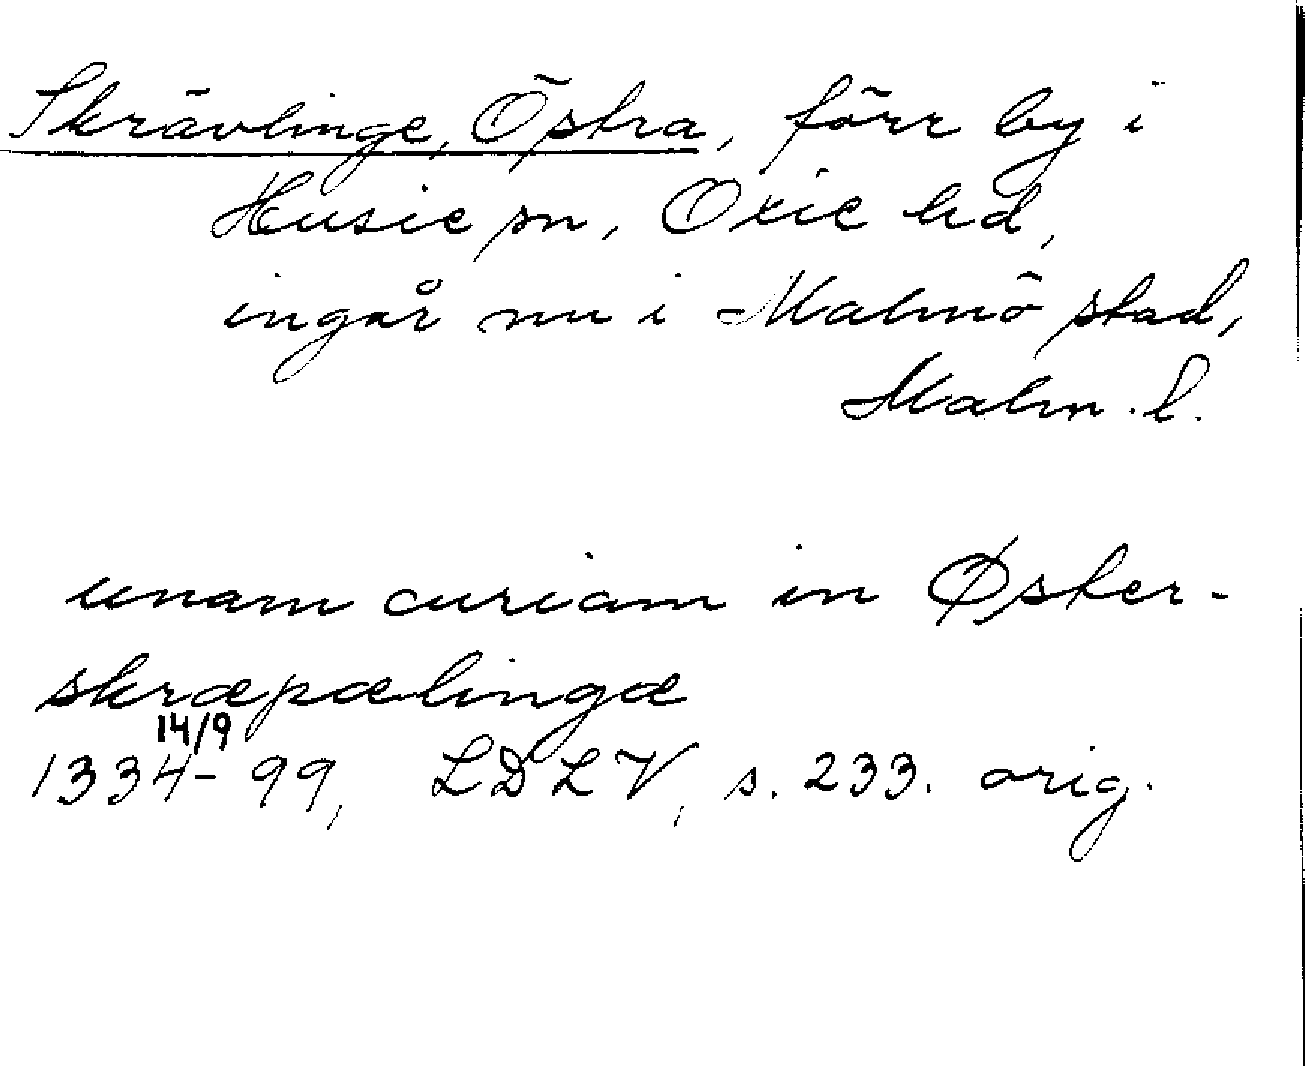 Skrävlinge, Östra, förr by i
Husie sn, Oxie hd,
ingår nu i Malmö stad,
Malm. l.
unam curiam in Øster-
skræpælingæ
14/9
1334-99, LDLV, s. 233. orig.